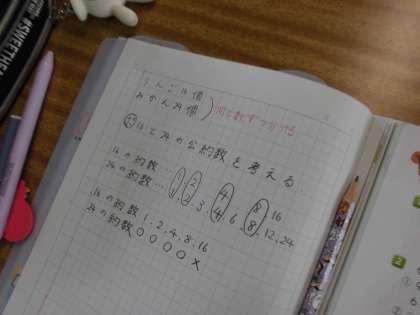 りんご16個
みかん24個
同じ数ずつ分ける
16と24の公約数を考える
16の約数… 1, 2, 4, 8, 16
24の約数… 1, 2, 3, 4, 6, 8, 12, 24
16の約数 1, 2, 4, 8, 16
24の約数 ○ ○ ○ ○ ×
2